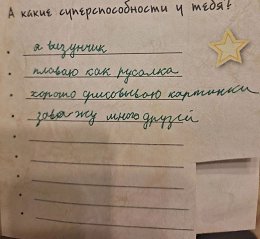 А какие суперспособности у тебя?
я везунчик
плаваю как русалка
хорошо фисовываю картинки
заважу много друзей